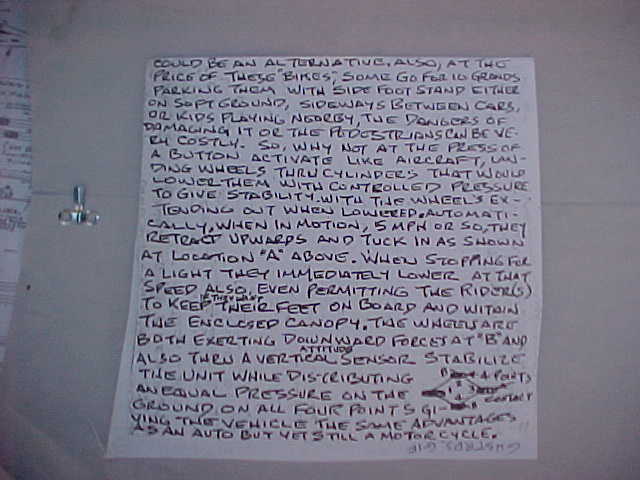 COULD BE AN ALTERNATIVE. ALSO, AT THE
PRICE OF THESE "BIKES", SOME GO FOR 10 GRANDS
PARKING THEM WITH SIDE FOOT STAND EITHER
ON SOFT GROUND, SIDEWAYS BETWEEN CARS,
OR KIDS PLAYING NEARBY, THE DANGERS OF
DAMAGING IT OR THE PEDESTRIANS CAN BE VE-
RY COSTLY. SO, WHY NOT AT THE PRESS OF
A BUTTON ACTIVATE LIKE AIRCRAFT, LAN-
DING WHEELS THRU CYLINDERS THAT WOULD
LOWER THEM WITH CONTROLLED PRESSURE
TO GIVE STABILITY. WITH THE WHEELS EX-
TENDING OUT WHEN LOWERED. AUTOMATI-
CALLY, WHEN IN MOTION, 5 MPH OR SO, THEY
RETRACT UPWARDS AND TUCK IN AS SHOWN
AT LOCATION "A" ABOVE. WHEN STOPPING FOR
A LIGHT THEY IMMEDIATELY LOWER AT THAT
SPEED ALSO, EVEN PERMITTING THE RIDER(S)
IF THEY WANT
TO KEEP THEIR FEET ON BOARD AND WITHIN
THE ENCLOSED CANOPY. THE WHEELS ARE
BOTH EXERTING DOWNWARD FORCES AT "B" AND
ATTITUDE
ALSO THRU A VERTICAL SENSOR STABILIZE
THE UNIT WHILE DISTRIBUTING
4 POINTS
AN EQUAL PRESSURE ON THE
CONTACT
GROUND ON ALL FOUR POINTS GI-
VING THE VEHICLE THE SAME ADVANTAGES
AS AN AUTO BUT YET STILL A MOTORCYCLE.